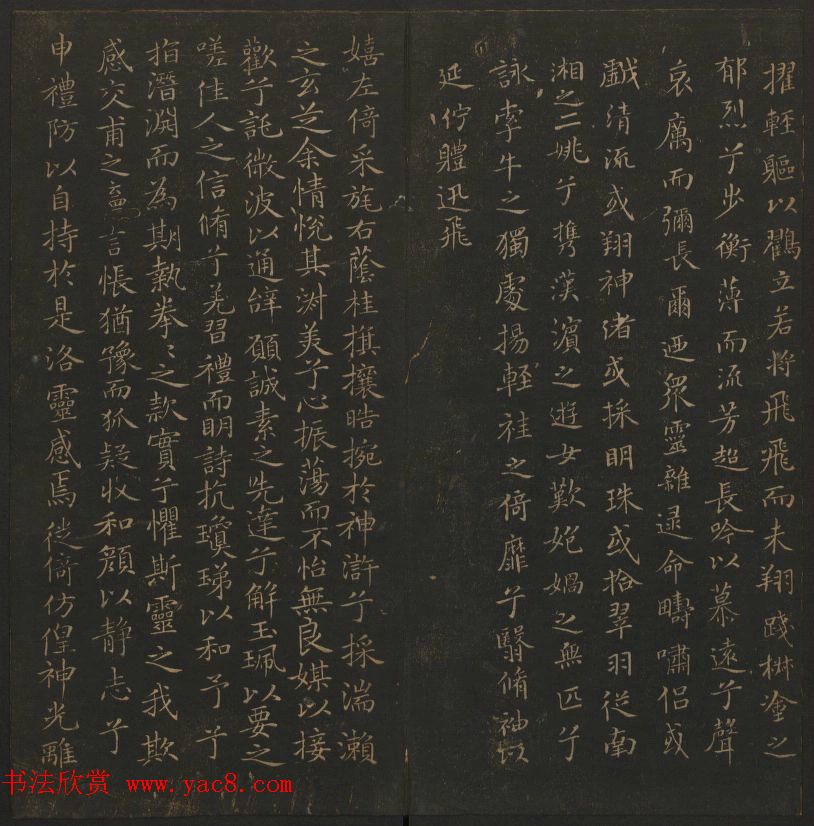 擢輕軀以鸖立若將飛飛而未翔踐椒塗之
郁烈兮步衡薄而流芳超長吟以慕遠兮聲
哀厲而彌長爾迺眾靈雜遝命疇嘯侶或
戲清流或翔神渚或採明珠或拾翠羽從南
湘之二姚兮携漢濱之遊女歎媧之無匹兮
詠牽牛之獨處揚輕袿之倚靡兮翳脩袖以
延佇體迅飛
嬉左倚采旄右蔭桂旗攘皓捥於神滸兮採湍瀨
之玄芝余情悅其淑美兮心振蕩而不怡無良媒以接
歡兮託微波以通辭願誠素之先達兮解玉珮以要之
嗟佳人之信脩兮羌習禮而明詩抗瓊珶以和予兮
指潛淵而為期執拳〻之款實兮懼斯靈之我欺
感交甫之棄言悵猶豫而狐疑收和顏以静志兮
申禮防以自持於是洛靈感焉徙倚仿偟神光離
书法欣赏 www.yac8.com